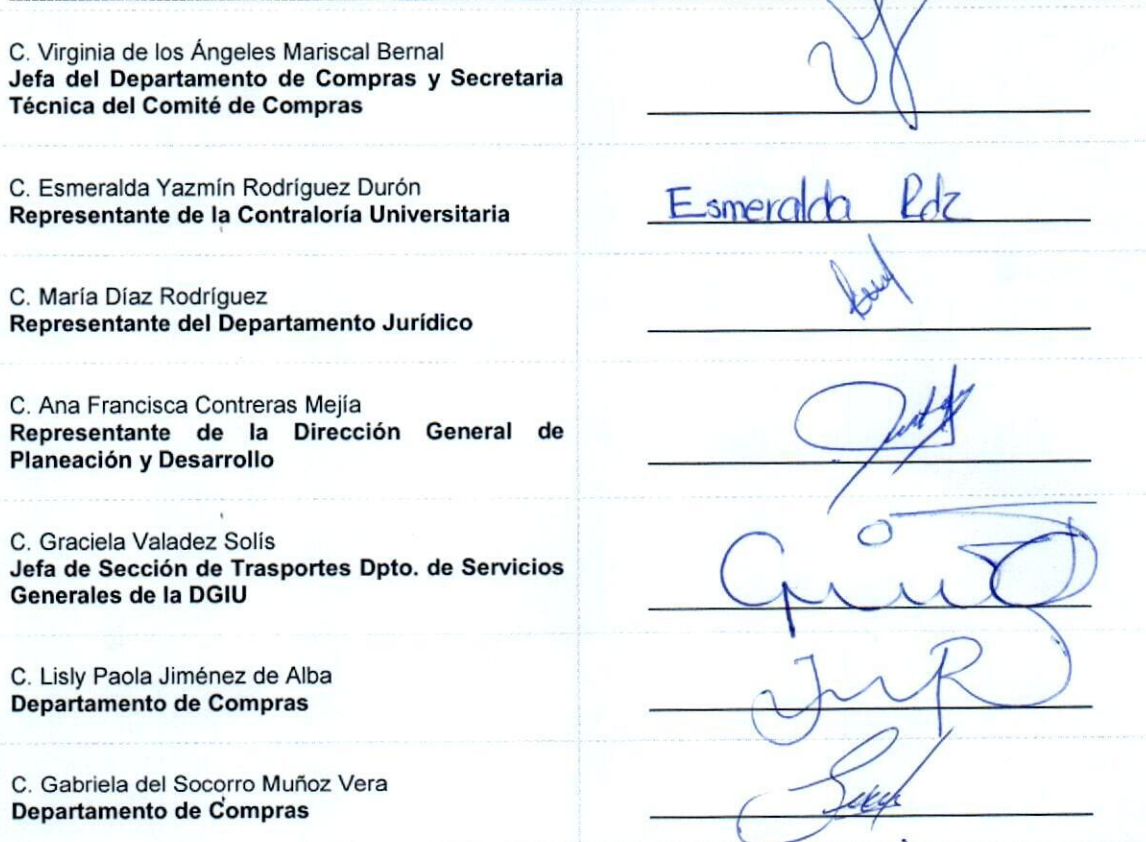 C. Virginia de los Ángeles Mariscal Bernal
Jefa del Departamento de Compras y Secretaria
Técnica del Comité de Compras
C. Esmeralda Yazmín Rodríguez Durón
Representante de la Contraloría Universitaria
Esmeralda Rdz
C. María Díaz Rodríguez
Representante del Departamento Jurídico
C. Ana Francisca Contreras Mejía
Representante de la Dirección General de
Planeación y Desarrollo
C. Graciela Valadez Solís
Jefa de Sección de Trasportes Dpto. de Servicios
Generales de la DGIU
C. Lisly Paola Jiménez de Alba
Departamento de Compras
C. Gabriela del Socorro Muñoz Vera
Departamento de Compras